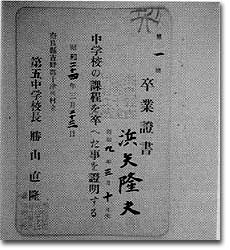 第一號
卒業證書
浜矢隆夫
昭和九年三月十日生
中学校の課程を卒へた事を證明する
昭和二十四年三月二十三日
奈良縣吉野郡十津川村立
第五中学校長 勝山直隆